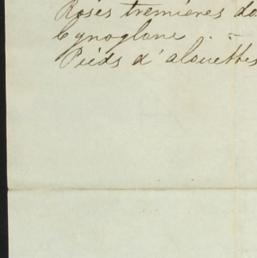 Roses tremieres do
Cynoglone . -
Pieds d'alouettes